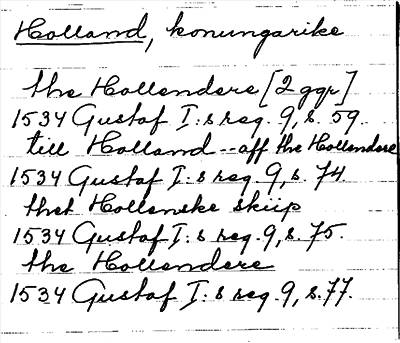 Holland, konungarike
the Hollendere [2 ggr]
1534 Gustaf I:s reg. 9, s. 59.
till Holland -- aff the Hollendere
1534 Gustaf I:s reg. 9, s. 74
thet Hollenske skiip
1534 Gustaf I:s reg. 9, s. 75.
the Hollendere
1534 Gustaf I:s reg. 9, s. 77.